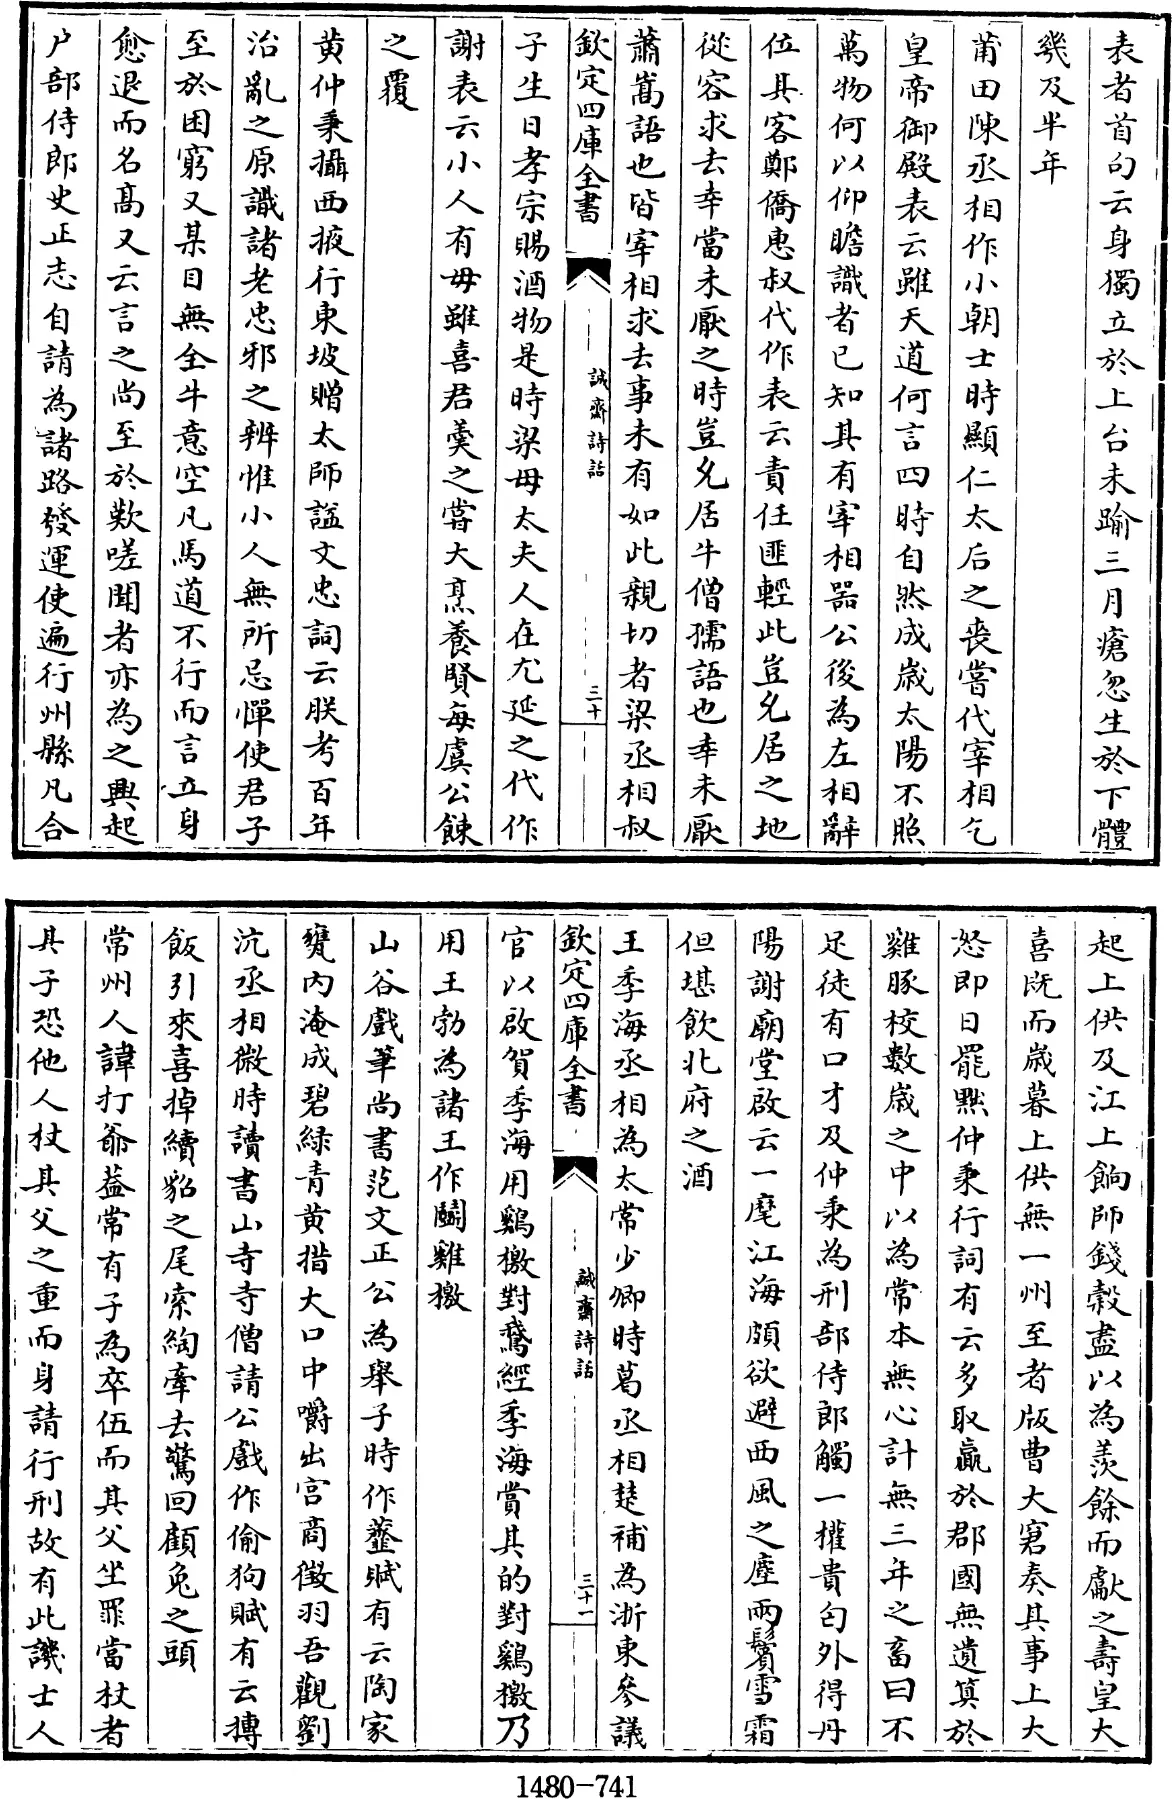 表者首句云身獨立於上台未踰三月瘡忽生於下體
幾及半年
莆田陳丞相作小朝士時顯仁太后之喪嘗代宰相乞
皇帝御殿表云雖天道何言四時自然成嵗太陽不照
萬物何以仰瞻識者已知其有宰相器公後為左相辭
位其客鄭僑惠叔代作表云責任匪輕此豈久居之地
從容求去幸當未厭之時豈久居牛僧孺語也幸未厭
蕭嵩語也皆宰相求去事未有如此親切者梁丞相叔
欽定四庫全書
誠齋詩話
三十
子生日孝宗賜酒物是時梁母太夫人在尤延之代作
謝表云小人有母雖喜君羮之嘗大烹養賢每虞公餗
之覆
黄仲秉攝西掖行東坡贈太師諡文忠詞云朕考百年
治亂之原識諸老忠邪之辨惟小人無所忌憚使君子
至於困窮又某目無全牛意空凡馬道不行而言立身
愈退而名髙又云言之尚至於歎嗟聞者亦為之興起
户部侍郎史正志自請為諸路發運使遍行州縣凡合
起上供及江上餉師錢穀盡以為羨餘而獻之壽皇大
喜既而嵗暮上供無一州至者版曹大窘奏其事上大
怒即日罷黜仲秉行詞有云多取贏於郡國無遺算於
雞豚校數嵗之中以為常本無心計無三年之畜曰不
足徒有口才及仲秉為刑部侍郎觸一權貴匄外得丹
陽謝廟堂啟云一麾江海頗欲避西風之塵兩鬢雪霜
但堪飲北府之酒
王季海丞相為太常少卿時葛丞相楚補為浙東參議
欽定四庫全書
誠齋詩話
三十一
官以啟賀季海用鷄檄對鵞經季海賞其的對鷄檄乃
用王勃為諸王作鬭雞檄
山谷戲筆尚書范文正公為舉子時作虀賦有云陶家
甕内淹成碧緑青黄措大口中嚼出宫商徵羽吾觀劉
沆丞相微時讀書山寺寺僧請公戲作偷狗賦有云摶
飯引來喜掉續貂之尾索綯牽去驚回顧兔之頭
常州人諱打爺葢常有子為卒伍而其父坐罪當杖者
其子恐他人杖其父之重而身請行刑故有此譏士人
1480-741